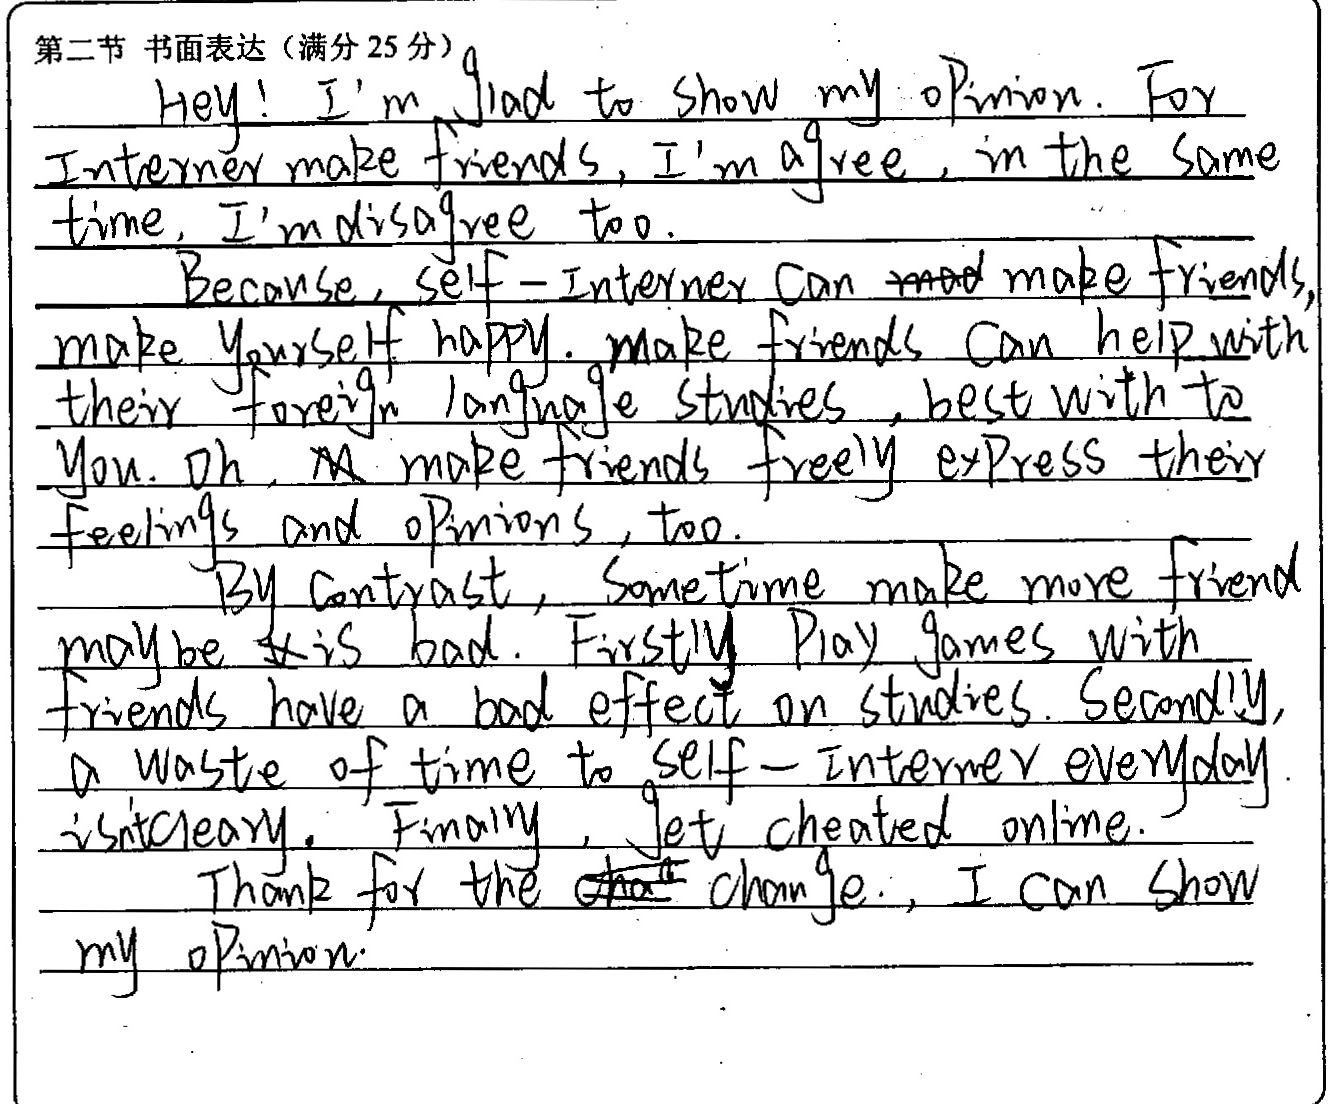 第二节 书面表达（满分 25 分）
Hey! I'm glad to show my opinion. For
Interner make friends, I'm agree, in the same
time, I'm disagree too.
Because, self-Interner can mad make friends,
make yourself happy. make friends can help with
their foreign language studies, best with to
you. Oh, M make friends freely express their
feelings and opinions, too.
By contrast, Sometime make more friend
maybe is bad. Firstly Play games with
friends have a bad effect on studies. Secondly,
a waste of time to self-Interner everyday.
isn't cleary. Finally, get cheated online.
Thank for the change., I can show
my opinion.